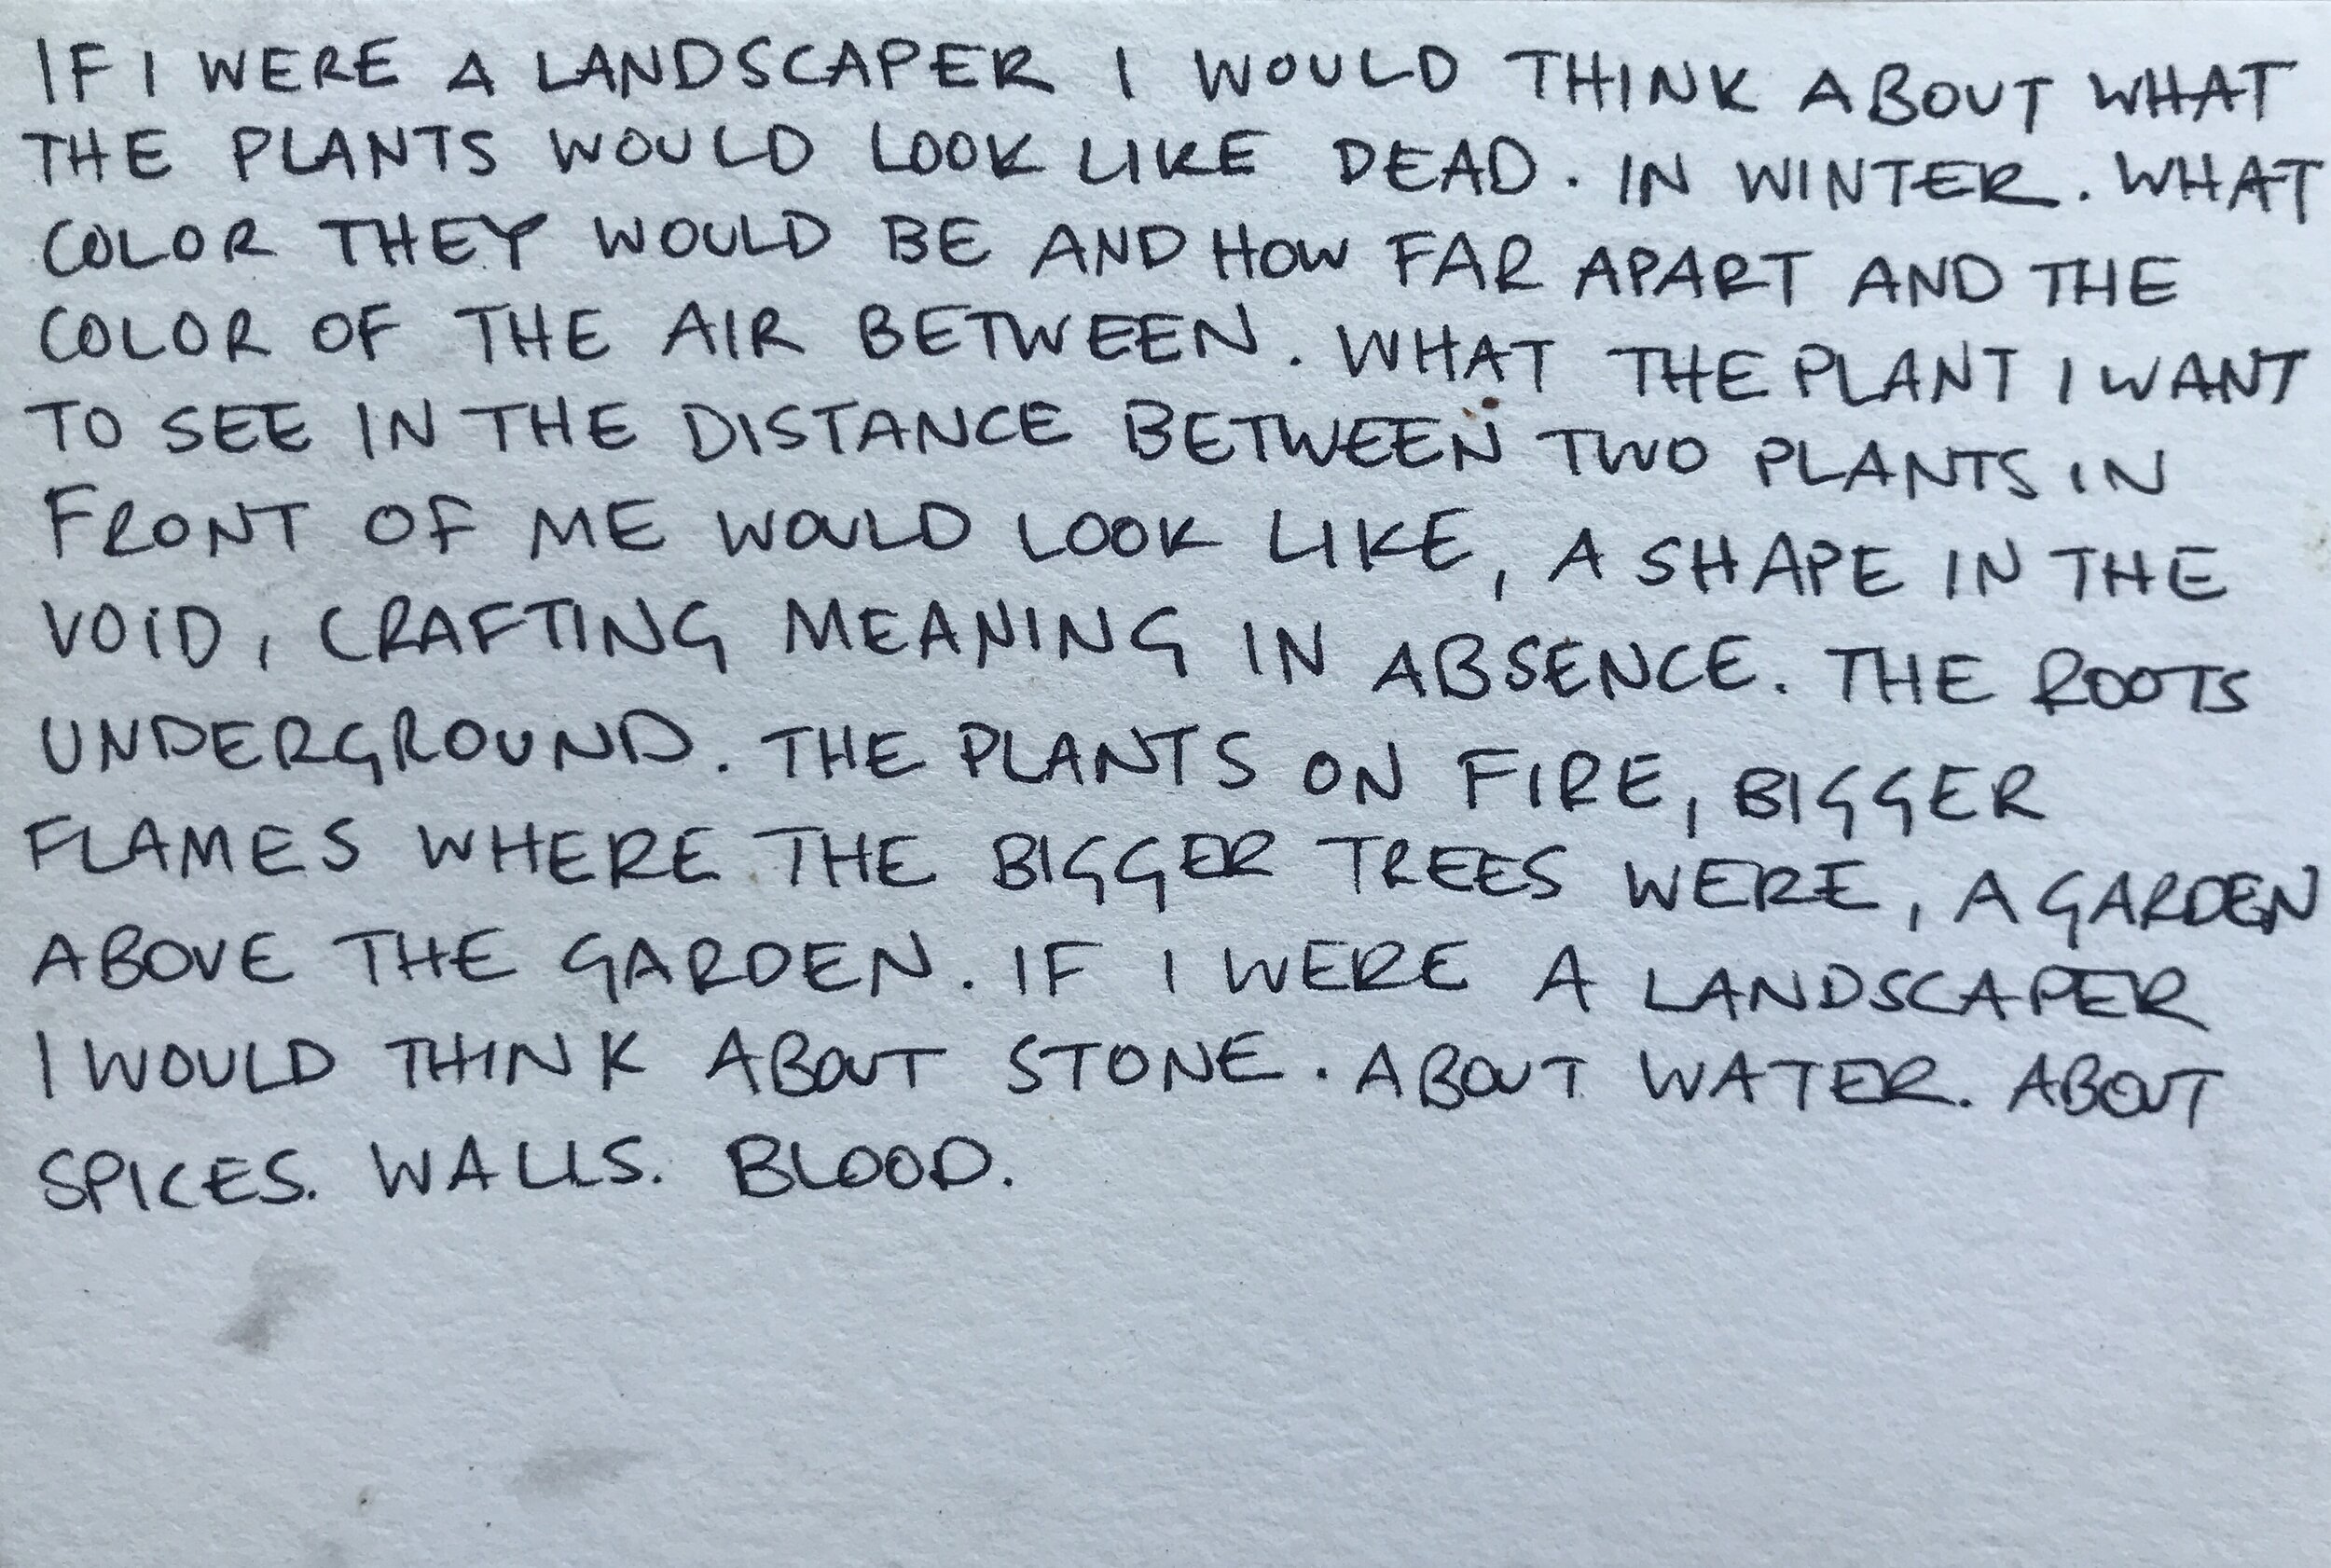 IF I WERE A LANDSCAPER I WOULD THINK ABOUT WHAT
THE PLANTS WOULD LOOK LIKE DEAD. IN WINTER. WHAT
COLOR THEY WOULD BE AND HOW FAR APART AND THE
COLOR OF THE AIR BETWEEN. WHAT THE PLANT I WANT
TO SEE IN THE DISTANCE BETWEEN TWO PLANTS IN
FRONT OF ME WOULD LOOK LIKE, A SHAPE IN THE
VOID, CRAFTING MEANING IN ABSENCE. THE ROOTS
UNDERGROUND. THE PLANTS ON FIRE, BIGGER
FLAMES WHERE THE BIGGER TREES WERE, A GARDEN
ABOVE THE GARDEN. IF I WERE A LANDSCAPER
I WOULD THINK ABOUT STONE. ABOUT WATER. ABOUT
SPICES. WALLS. BLOOD.